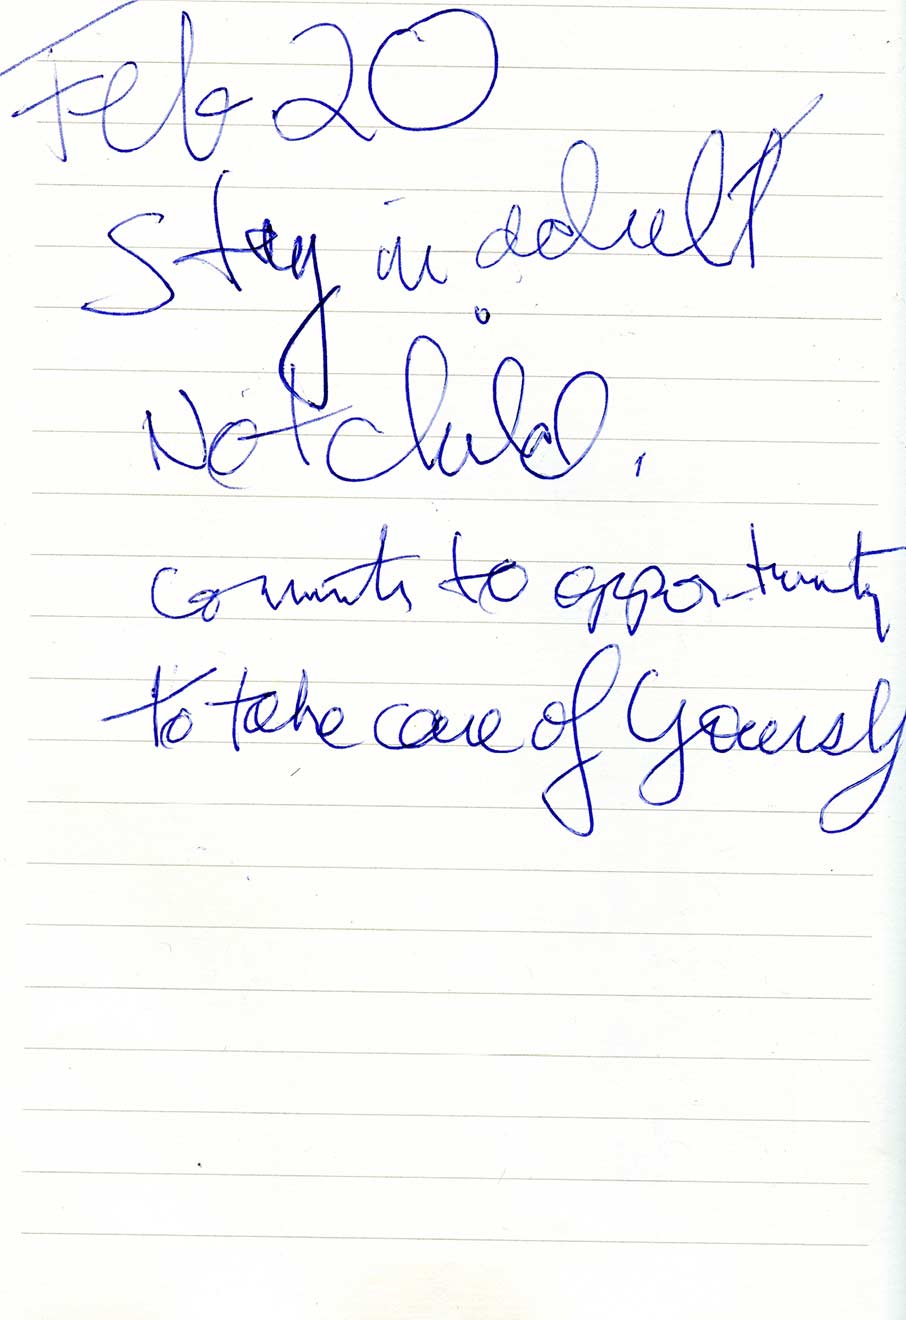 Feb 20
Stay in adult
Not child.
commit to opportunity
to take care of yourself